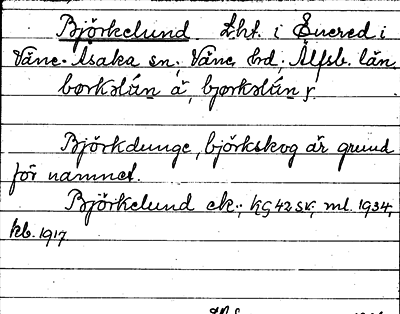 Björkelund. Lht. i Sucred i
Väne-Åsaka sn; Väne hd; Älfsb. län.
Björkdunge, björkskog är grund
för namnet.
Björkelund ek.; KG 42 SV; ml. 1934,
kb. 1917